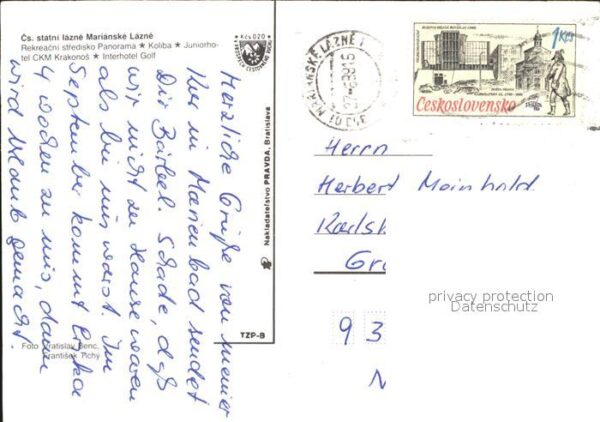 Čs. státní lázně Mariánské Lázně
Rekreační středisko Panorama ★ Koliba ★ Juniorho-
tel CKM Krakonoš ★ Interhotel Golf
Kčs 0,20
Herzliche Grüße von meiner
Kur in Marienbad sendet
Dir Bärbel. Schade, daß
wir nicht zu Hause waren
als Du bei uns warst. Im
September kommt Erika
4 Wochen zu uns, dann
wird Urlaub gemacht.
Foto Vratislav Benc,
František Tichý
Nakladatelstvo PRAVDA, Bratislava
TZP-B
MARIÁNSKÉ LÁZNĚ 1
1 Kčs
Československo
Herrn
Herbert Meinhold
Karlsh
Gr
privacy protection
Datenschutz
9 3
N